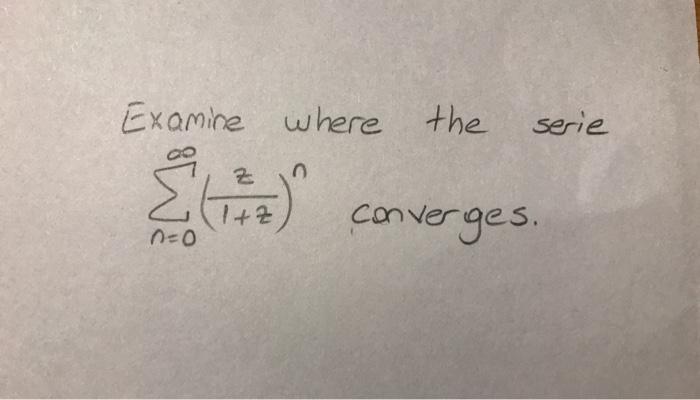 Examine where the serie
∞
∑ (z/(1+z))^n converges.
n=0